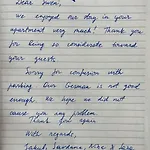 Dear Sven,
we enjoyed our day in your
apartment very much! Thank you
for being so considerate toward
your guest.
Sorry for confusion with
parking. Our German is not good
enough. We hope we did not
cause you any problem.
Thank you again
With regards,
Jakub, Savannah,